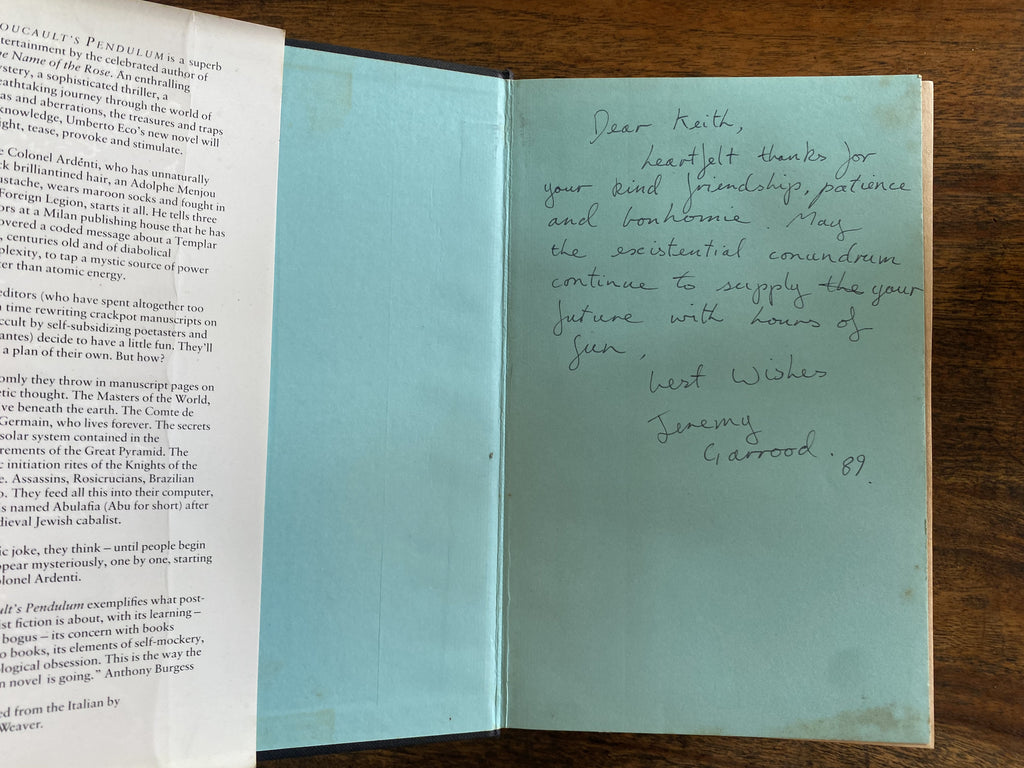 OUCAULT'S PENDULUM is a superb
tertainment by the celebrated author of
e Name of the Rose. An enthralling
stery, a sophisticated thriller, a
eathtaking journey through the world of
as and aberrations, the treasures and traps
knowledge, Umberto Eco's new novel will
ight, tease, provoke and stimulate.
e Colonel Ardenti, who has unnaturally
ck brilliantined hair, an Adolphe Menjou
ustache, wears maroon socks and fought in
Foreign Legion, starts it all. He tells three
ors at a Milan publishing house that he has
overed a coded message about a Templar
, centuries old and of diabolical
plexity, to tap a mystic source of power
ter than atomic energy.
editors (who have spent altogether too
n time rewriting crackpot manuscripts on
ccult by self-subsidizing poetasters and
antes) decide to have a little fun. They'll
a plan of their own. But how?
omly they throw in manuscript pages on
etic thought. The Masters of the World,
ve beneath the earth. The Comte de
Germain, who lives forever. The secrets
solar system contained in the
rements of the Great Pyramid. The
c initiation rites of the Knights of the
e. Assassins, Rosicrucians, Brazilian
o. They feed all this into their computer,
s named Abulafia (Abu for short) after
dieval Jewish cabalist.
ic joke, they think – until people begin
ppear mysteriously, one by one, starting
olonel Ardenti.
ult's Pendulum exemplifies what post-
st fiction is about, with its learning –
bogus – its concern with books
o books, its elements of self-mockery,
ological obsession. This is the way the
n novel is going." Anthony Burgess
ed from the Italian by
Weaver.
Dear Keith,
heartfelt thanks for
your kind friendship, patience
and bonhomie. May
the existential conundrum
continue to supply the your
future with hours of
fun,
best Wishes
Jeremy
Garrood.
89.